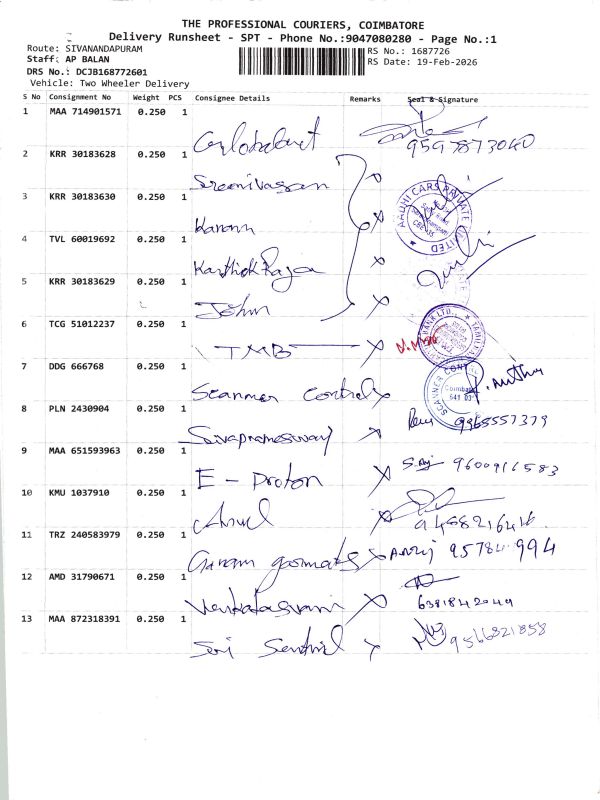 THE PROFESSIONAL COURIERS, COIMBATORE
Delivery Runsheet - SPT - Phone No.:9047080280 - Page No.:1
Route: SIVANANDAPURAM
Staff: AP BALAN
DRS No.: DCJB168772601
Vehicle: Two Wheeler Delivery
RS No.: 1687726
RS Date: 19-Feb-2026
S No Consignment No Weight PCS Consignee Details Remarks Seal & Signature
1 MAA 714901571 0.250 1
9597873040
2 KRR 30183628 0.250 1 Sreenivassan
3 KRR 30183630 0.250 1 Karann
AADHI CARS PRIVATE LIMITED
4 TVL 60019692 0.250 1 Karthick Raja
5 KRR 30183629 0.250 1 John
6 TCG 51012237 0.250 1 TMB
7 DDG 666768 0.250 1 Scanner Control
SCANNER CONTROL
Coimbatore
8 PLN 2430904 0.250 1 Sivaprameswary
9965557379
9 MAA 651593963 0.250 1 E - Proton
9600916583
10 KMU 1037910 0.250 1 Arul
11 TRZ 240583979 0.250 1
95784 994
12 AMD 31790671 0.250 1 Venkataswami
6381842049
13 MAA 872318391 0.250 1 Sri Senthil
9566821858